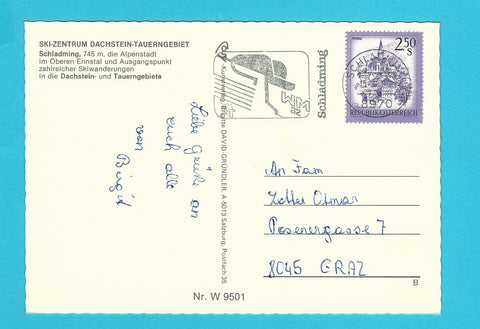 SKI-ZENTRUM DACHSTEIN-TAUERNGEBIET
Schladming, 745 m, die Alpenstadt
im Oberen Ennstal und Ausgangspunkt
zahlreicher Skiwanderungen
in die Dachstein- und Tauerngebiete
Liebe Grüße an
euch alle
von
Birgit
DAVID-GRÜNDLER, A-5013 Salzburg, Postfach 35
WM
Schladming
2.50
S
8970
REPUBLIK ÖSTERREICH
An Fam
Zotter Otmar
Posenergasse 7
8045 GRAZ
Nr. W 9501
B